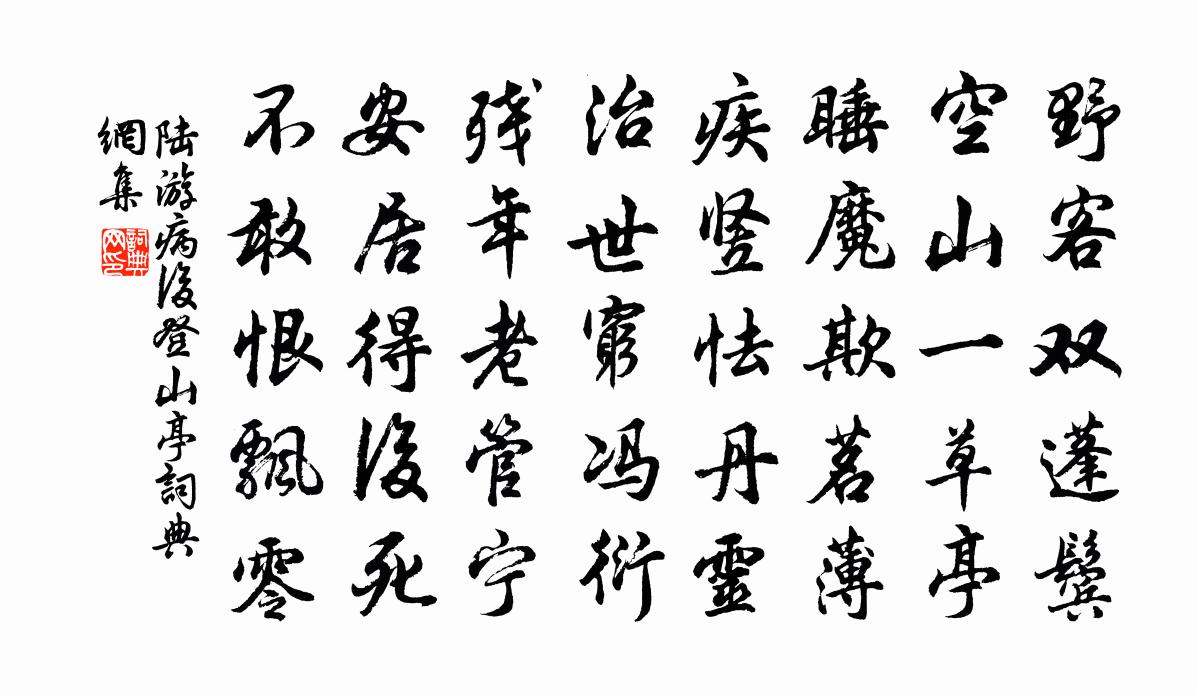 野客双蓬鬓
空山一草亭
睡魔欺茗薄
疾竖怯丹靈
治世窮冯衍
残年老管宁
安居得後死
不敢恨飄零
陆游病後登山亭詞典
網集
詞典
网印